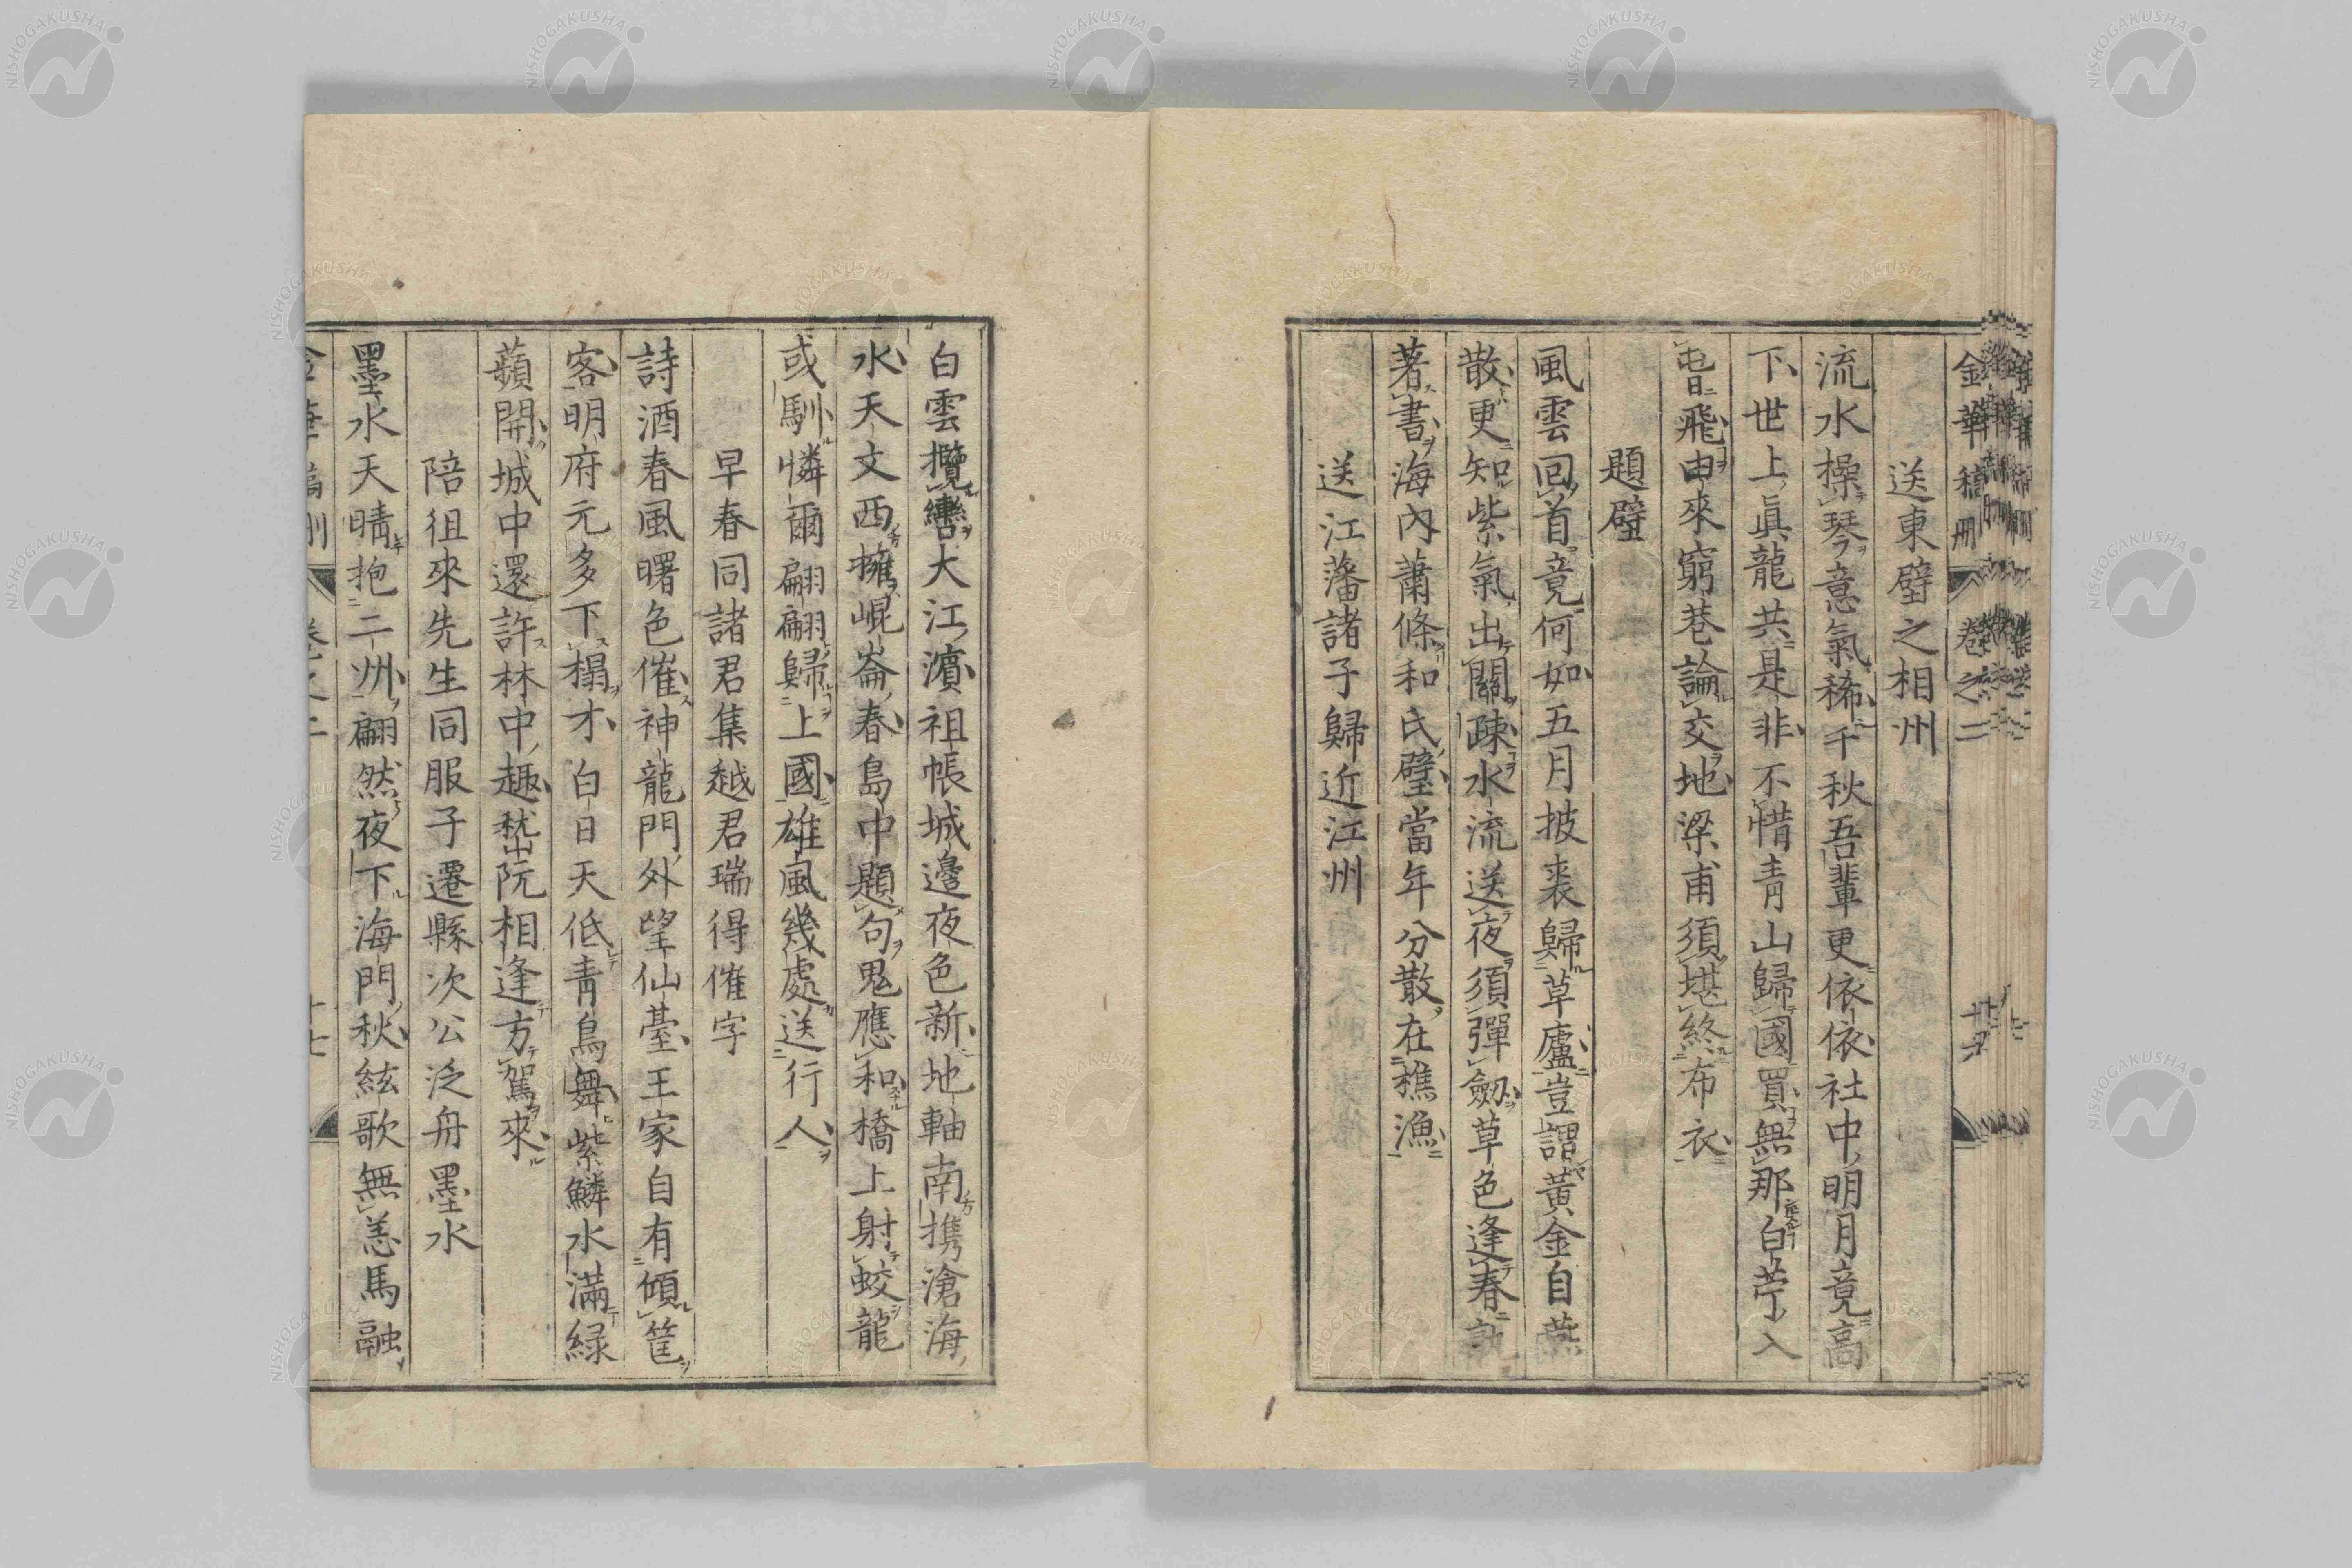 金華稿刪 卷之二
送東壁之相州
流水操琴意氣稀千秋吾輩更依依社中明月竟高
下世上眞龍共是非不惜青山歸國買無那白苧入
皆飛由來窮巷論交地梁甫須堪終布衣
題壁
風雲回首竟何如五月披裘歸草廬豈謂黃金自燕
散更知紫氣出關疎水流送夜須彈劔草色逢春
著書海內蕭條和氏璧當年分散在樵漁
送江藩諸子歸近江州
白雲攬轡大江濱祖帳城邊夜色新地軸南携滄海
水天文西擁崐崙春島中題句鬼應和橋上射蛟龍
或馴憐爾翩翩歸上國雄風幾處送行人
早春同諸君集越君瑞得催字
詩酒春風曙色催神龍門外望仙臺王家自有傾筐
客明府元多下榻才白日天低青鳥舞紫鱗水滿綠
蘋開城中還許林中趣嵇阮相逢方駕來
陪徂來先生同服子遷縣次公泛舟墨水
墨水天晴抱二州翩然夜下海門秋絃歌無恙馬融
NISHOGAKUSHA